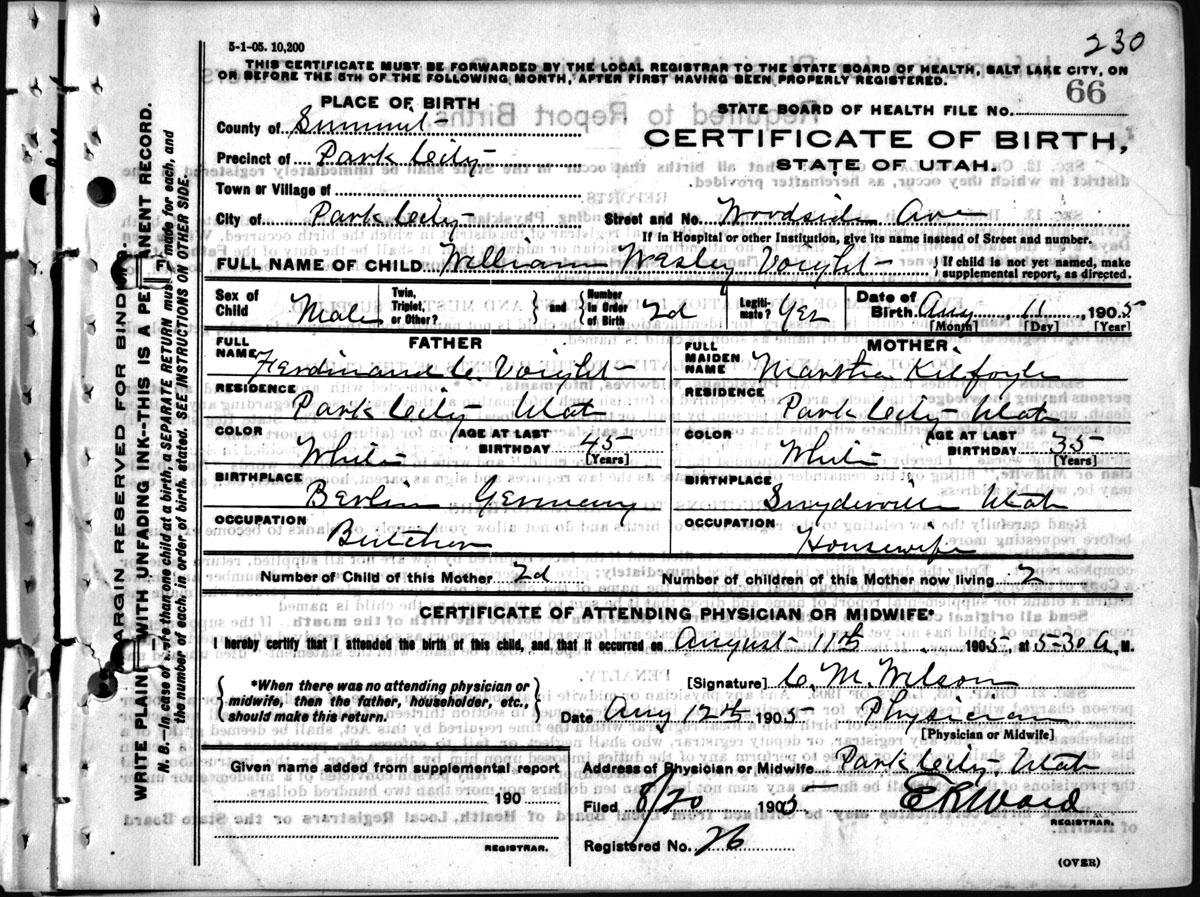 5-1-05. 10,200
230
THIS CERTIFICATE MUST BE FORWARDED BY THE LOCAL REGISTRAR TO THE STATE BOARD OF HEALTH, SALT LAKE CITY, ON
OR BEFORE THE 5TH OF THE FOLLOWING MONTH, AFTER FIRST HAVING BEEN PROPERLY REGISTERED.
66
PLACE OF BIRTH
STATE BOARD OF HEALTH FILE NO.
County of Summit
CERTIFICATE OF BIRTH,
Precinct of Park City
STATE OF UTAH.
Town or Village of
City of Park City
Street and No. Woodside Ave
If in Hospital or other Institution, give its name instead of Street and number.
FULL NAME OF CHILD William Wesley Voight
{ If child is not yet named, make
supplemental report, as directed.
Sex of Child Male
Twin, Triplet, or Other? } and { Number in Order of Birth 2d
Legitimate? Yes
Date of Birth Aug 11 1905
[Month] [Day] [Year]
FATHER
FULL NAME Ferdinand C. Voight
RESIDENCE
Park City Utah
COLOR White
AGE AT LAST BIRTHDAY 45
[Years]
BIRTHPLACE
Berlin Germany
OCCUPATION
Butcher
MOTHER
FULL MAIDEN NAME Martha Kilfoyle
RESIDENCE
Park City Utah
COLOR White
AGE AT LAST BIRTHDAY 35
[Years]
BIRTHPLACE
Snyderville Utah
OCCUPATION
Housewife
Number of Child of this Mother 2d
Number of children of this Mother now living 2
CERTIFICATE OF ATTENDING PHYSICIAN OR MIDWIFE*
I hereby certify that I attended the birth of this child, and that it occurred on August 11th, 1905, at 5-30 A. M.
{ *When there was no attending physician or
midwife, then the father, householder, etc.,
should make this return. }
[Signature] C. M. Wilson
Date Aug 12th 1905 Physician
[Physician or Midwife]
Given name added from supplemental report
190
REGISTRAR.
Address of Physician or Midwife Park City, Utah
Filed 8/20 1905 E R Ward
REGISTRAR.
Registered No. 26
(OVER)
MARGIN RESERVED FOR BINDING.
WRITE PLAINLY WITH UNFADING INK--THIS IS A PERMANENT RECORD.
N. B.--In case of more than one child at a birth, a SEPARATE RETURN must be made for each, and
the number of each, in order of birth, stated. SEE INSTRUCTIONS ON OTHER SIDE.